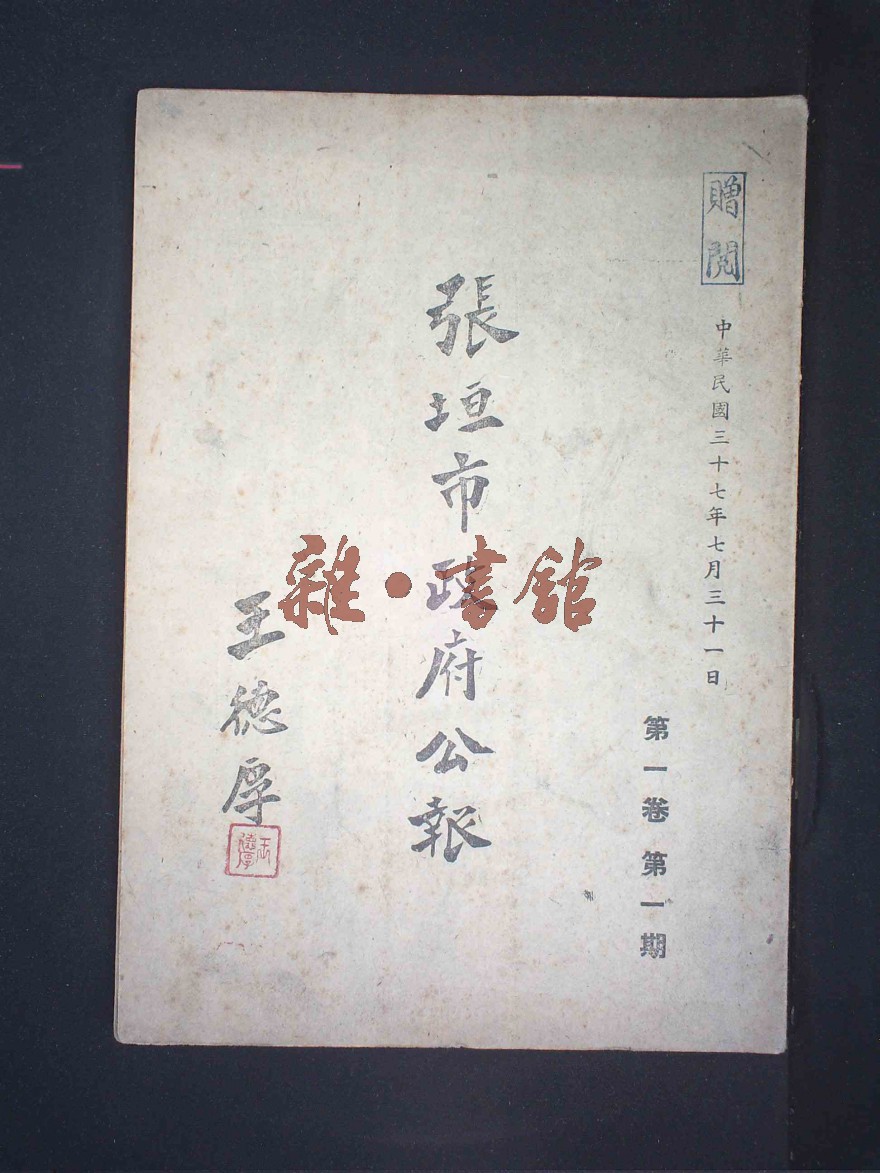 贈閱
中華民國三十七年七月三十一日
第一卷 第一期
張垣市政府公報
王德厚
王德厚
雜·書館